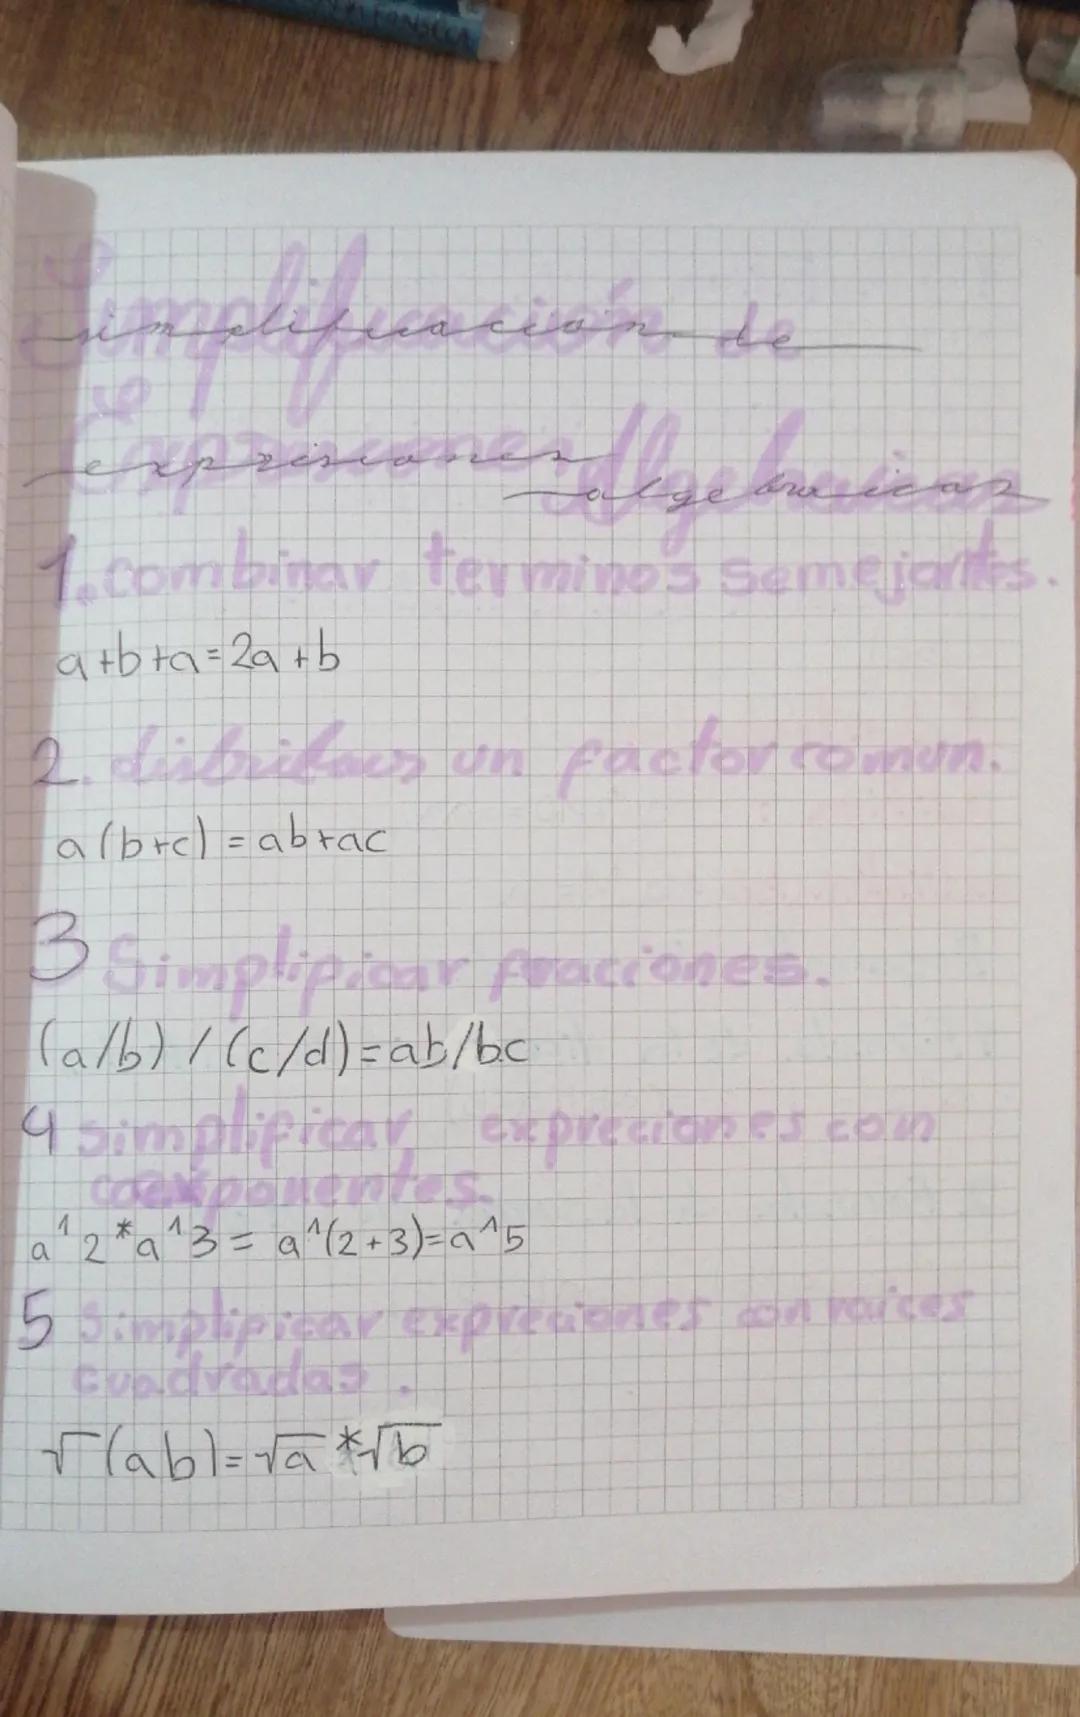 Simplificación de
simplificacion de
Expresiones Algebraicas
expresiones algebraicas
1. combinar terminos semejantes.
a+b+a=2a+b
2. distribuir un factor comun.
a(b+c)=ab+ac
3 Simplipicar fracciones.
(a/b)/(c/d)=ab/bc
4 simplipicar expreciones con
exponentes.
a^2*a^3=a^(2+3)=a^5
5 Simplipicar expreciones con raices
cuadradas.
√(ab)=√a*√b